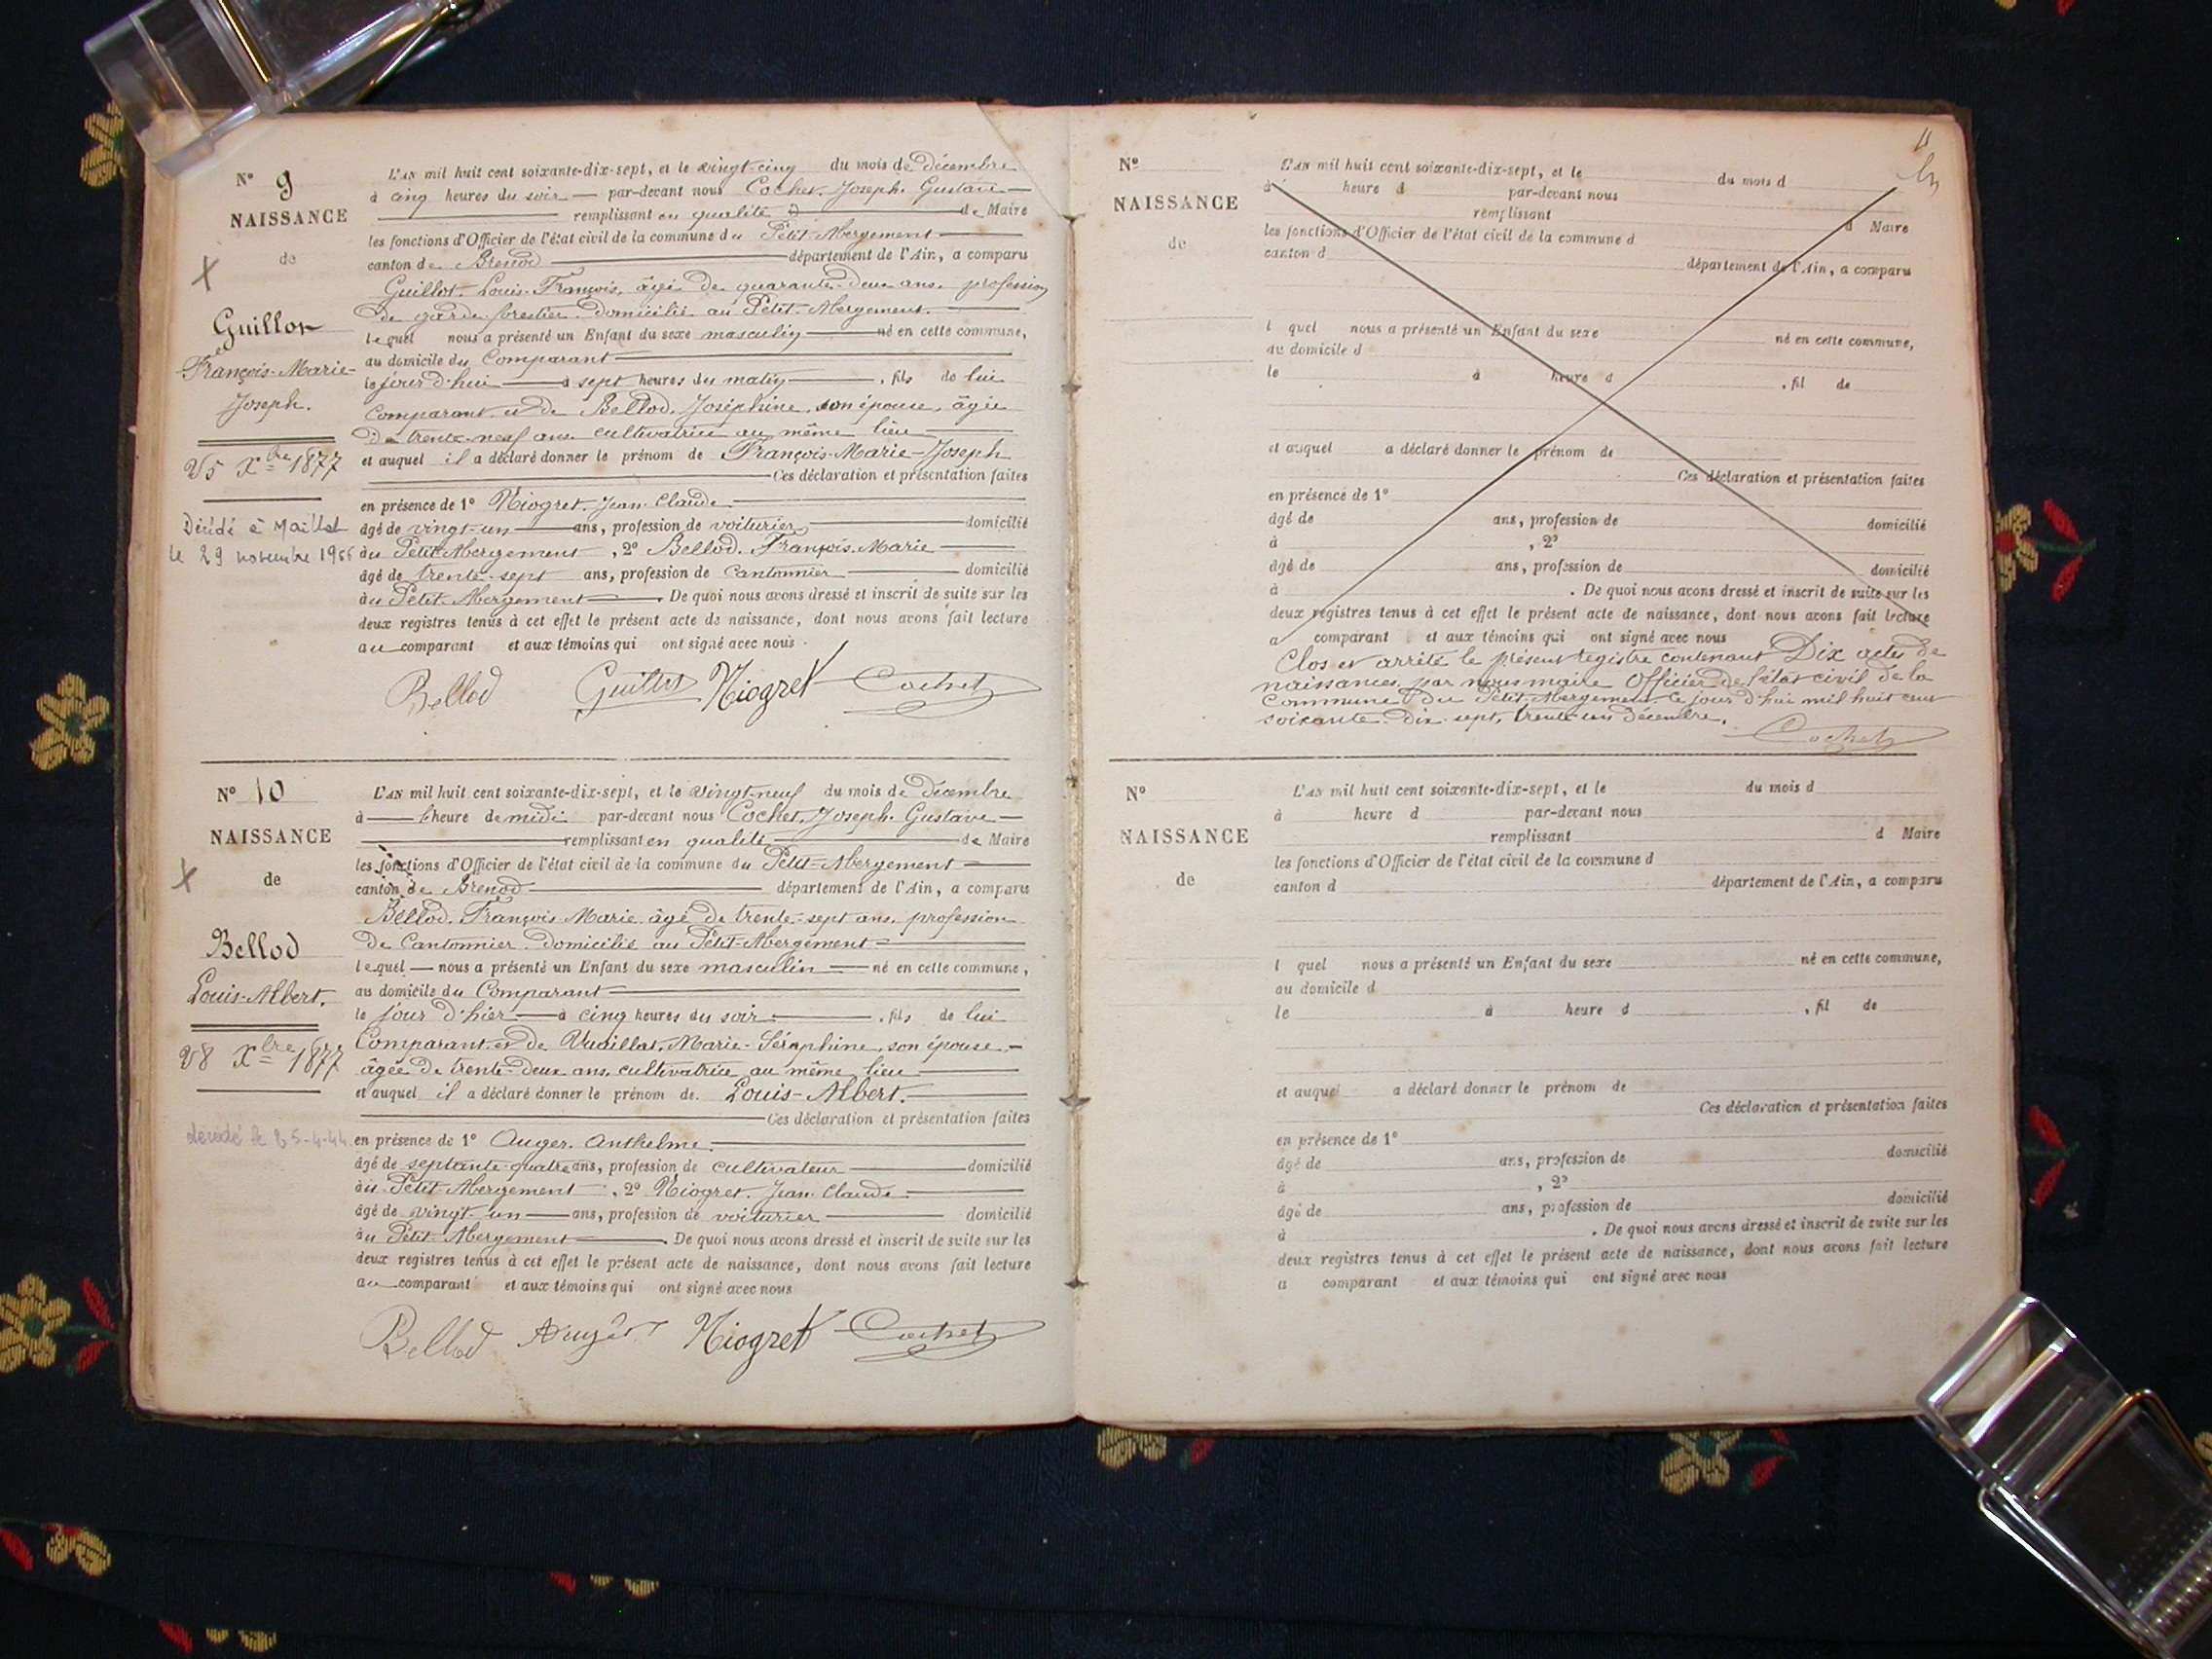 N° 9
NAISSANCE
de
Guillot
François-Marie-
Joseph.
25 Xbre 1877
Décédé à Maillat
le 29 novembre 1956
L'AN mil huit cent soixante-dix-sept, et le vingt-cinq du mois de décembre
à cinq heures du soir par-devant nous Cochet, Joseph, Gustave
remplissant en qualité de Maire
les fonctions d'Officier de l'état civil de la commune du Petit-Abergement
canton de Brenod département de l'Ain, a comparu
Guillot, Louis-François, âgé de quarante-deux ans, profession
de garde-forestier, domicilié au Petit-Abergement.
lequel nous a présenté un Enfant du sexe masculin né en cette commune,
au domicile du Comparant
le jour d'hui à sept heures du matin, fils de lui
Comparant et de Bellod, Joséphine, son épouse, âgée
de trente-neuf ans, cultivatrice au même lieu
et auquel il a déclaré donner le prénom de François-Marie-Joseph
Ces déclaration et présentation faites
en présence de 1° Niogret, Jean Claude
âgé de vingt-un ans, profession de voiturier domicilié
au Petit-Abergement, 2° Bellod, François-Marie
âgé de trente-sept ans, profession de Cantonnier domicilié
au Petit-Abergement. De quoi nous avons dressé et inscrit de suite sur les
deux registres tenus à cet effet le présent acte de naissance, dont nous avons fait lecture
au comparant et aux témoins qui ont signé avec nous.
Bellod Guillot Niogret Cochet
N° 10
NAISSANCE
de
Bellod
Louis-Albert.
28 Xbre 1877
décédé le 25-4-44
L'AN mil huit cent soixante-dix-sept, et le vingt-neuf du mois de décembre
à heure de midi par-devant nous Cochet, Joseph, Gustave
remplissant en qualité de Maire
les fonctions d'Officier de l'état civil de la commune du Petit-Abergement
canton de Brenod département de l'Ain, a comparu
Bellod, François-Marie, âgé de trente-sept ans, profession
de Cantonnier, domicilié au Petit-Abergement
lequel nous a présenté un Enfant du sexe masculin né en cette commune,
au domicile du Comparant
le jour d'hier à cinq heures du soir, fils de lui
Comparant et de Vuaillat, Marie-Séraphine, son épouse,
âgée de trente-deux ans, cultivatrice au même lieu
et auquel il a déclaré donner le prénom de Louis-Albert.
Ces déclaration et présentation faites
en présence de 1° Auger, Anthelme
âgé de septante-quatre ans, profession de cultivateur domicilié
au Petit-Abergement, 2° Niogret, Jean Claude
âgé de vingt-un ans, profession de voiturier domicilié
au Petit-Abergement. De quoi nous avons dressé et inscrit de suite sur les
deux registres tenus à cet effet le présent acte de naissance, dont nous avons fait lecture
au comparant et aux témoins qui ont signé avec nous
Bellod Auger Niogret Cochet
11
N°
NAISSANCE
de
L'AN mil huit cent soixante-dix-sept, et le du mois d
à heure d par-devant nous
remplissant d Maire
les fonctions d'Officier de l'état civil de la commune d
canton d département de l'Ain, a comparu
l quel nous a présenté un Enfant du sexe né en cette commune,
au domicile d
le à heure d, fil de
et auquel a déclaré donner le prénom de
Ces déclaration et présentation faites
en présence de 1°
âgé de ans, profession de domicilié
à , 2°
âgé de ans, profession de domicilié
à . De quoi nous avons dressé et inscrit de suite sur les
deux registres tenus à cet effet le présent acte de naissance, dont nous avons fait lecture
a comparant et aux témoins qui ont signé avec nous
Clos et arrêté le présent registre contenant Dix actes de
naissances, par nous maire Officier de l'état civil de la
Commune du Petit-Abergement ce jour d'hui mil huit cent
soixante-dix-sept, trente-un décembre.
Cochet
N°
NAISSANCE
de
L'AN mil huit cent soixante-dix-sept, et le du mois d
à heure d par-devant nous
remplissant d Maire
les fonctions d'Officier de l'état civil de la commune d
canton d département de l'Ain, a comparu
l quel nous a présenté un Enfant du sexe né en cette commune,
au domicile d
le à heure d , fil de
et auquel a déclaré donner le prénom de
Ces déclaration et présentation faites
en présence de 1°
âgé de ans, profession de domicilié
à , 2°
âgé de ans, profession de domicilié
à . De quoi nous avons dressé et inscrit de suite sur les
deux registres tenus à cet effet le présent acte de naissance, dont nous avons fait lecture
a comparant et aux témoins qui ont signé avec nous